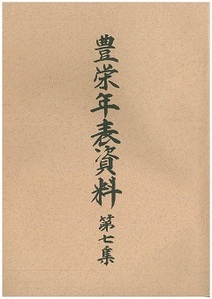 豊栄年表資料
第七集